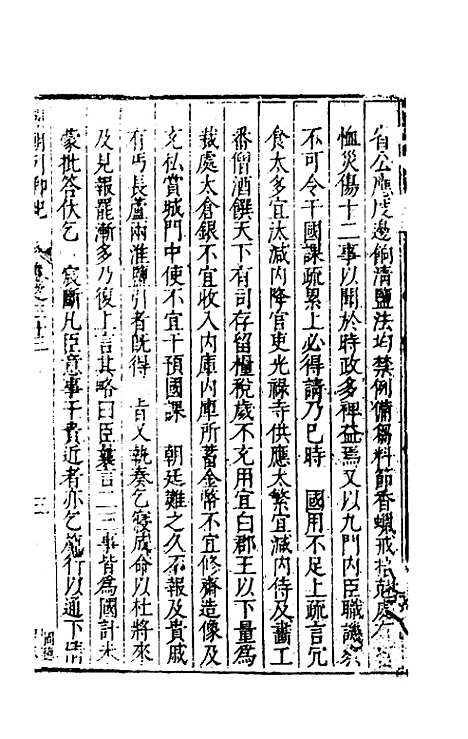 省公應度邊餉清鹽法均禁例備芻料節香蠟戒掊尅處
恤災傷十二事以聞於時政多裨益焉又以九門內臣職譏察
不可令干國課疏累上必得請乃已時 國用不足上疏言冗
食太多宜汰減內降官吏光祿寺供應太繁宜減內侍及畵工
番僧酒饌天下有司存留糧稅歲不充用宜自郡王以下量爲
裁處太倉銀不宜收入內庫內庫所蓄金幣不宜修齋造像及
充私賞城門中使不宜干預國課 朝廷難之久不報及貴戚
有丐長蘆兩淮鹽引者旣得 旨又執奏乞寢成命以杜將來
及見報罷漸多乃復上言其略曰臣曩言二三事皆爲國計未
蒙批答伏乞 宸斷凡臣意事干貴近者亦乞施行以通下情
朝列卿
卷之三十三
三